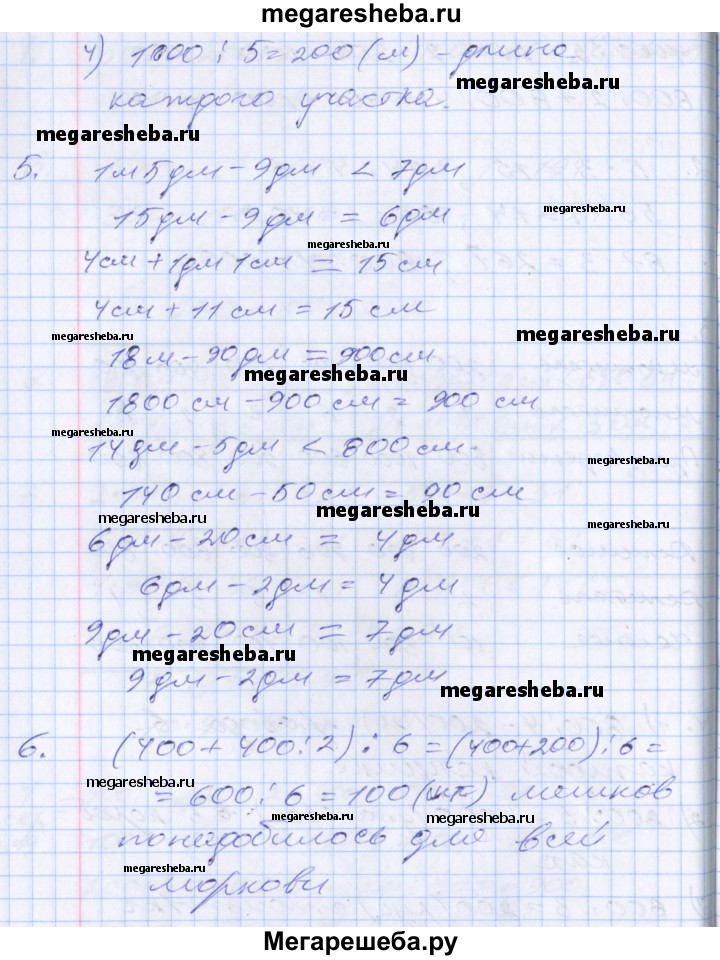 megaresheba.ru
4) 1000 : 5 = 200 (м) - длина
megaresheba.ru
каждого участка.
megaresheba.ru
5. 1м 5дм - 9дм < 7дм
megaresheba.ru
15дм - 9дм = 6дм
megaresheba.ru
4см + 1дм 1см = 15см
4см + 11см = 15см
megaresheba.ru
megaresheba.ru
18м - 90дм = 900см
megaresheba.ru
1800см - 900см = 900см
megaresheba.ru
14дм - 5дм < 800см
megaresheba.ru
140см - 50см = 90см
megaresheba.ru
megaresheba.ru
megaresheba.ru
6дм - 20см = 4дм
6дм - 2дм = 4дм
9дм - 20см = 7дм
megaresheba.ru
9дм - 2дм = 7дм
megaresheba.ru
6. (400 + 400 : 2) : 6 = (400 + 200) : 6 =
megaresheba.ru
= 600 : 6 = 100 (шт) мешков
megaresheba.ru
понадобилось для всей
megaresheba.ru
моркови
Мегарешеба.ру